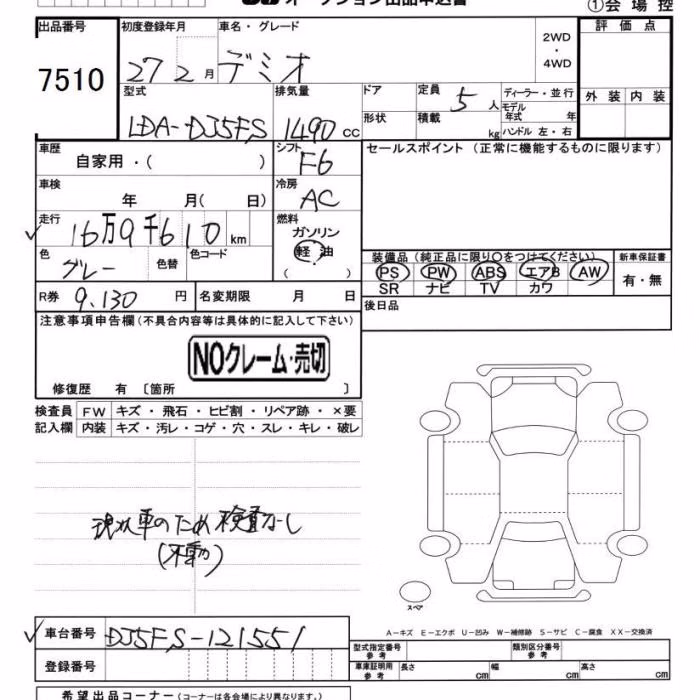 オークション出品申込書
①会場控
出品番号 初度登録年月 車名・グレード 評価点
7510 27 2月 デミオ 2WD・4WD
型式 排気量 ドア 定員 5人 ディーラー・並行 外装 内装
LDA-DJ5FS 1490cc 形状 積載 kg モデル年式 年
ハンドル 左・右
車歴 自家用・( ) シフト F6 セールスポイント (正常に機能するものに限ります)
車検 年 月( 日) 冷房 AC
走行 16万9千610km 燃料 ガソリン 軽油 ( )
色 グレー 色替 色コード
装備品(純正品に限り○をつけてください) 新車保証書
PS PW ABS エアB AW 有・無
SR ナビ TV カワ
R券 9,130円 名変期限 月 日 後日品
注意事項申告欄(不具合内容等は具体的に記入して下さい)
NOクレーム・売切
修復歴 有 〔箇所 〕
検査員 FW キズ・飛石・ヒビ割・リペア跡・×要
記入欄 内装 キズ・汚レ・コゲ・穴・スレ・キレ・破レ
現状車のため検査なし
(不動)
スペア
A-キズ E-エクボ U-凹み W-補修跡 S-サビ C-腐食 XX-交換済
車台番号 DJ5FS-121551
型式指定番号 参考 類別区分番号 参考
登録番号
車庫証明用 参考 長さ cm 幅 cm 高さ cm
希望出品コーナー(コーナーは各会場により異なります。)